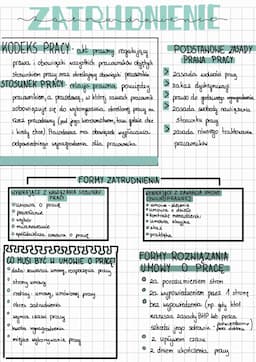 ZATRUDNIENIE
KODEKS PRACY - akt prawny regulujący
prawa i obowiązki wszystkich pracowników objętych
stosunkiem pracy oraz określający obowiązki pracownika
STOSUNEK PRACY - relacja prawna pomiędzy
pracownikiem, a pracodawcą, w której zakresie pracownik
zobowiązuje się do wykonywania określonej pracy na
rzecz pracodawcy (pod jego kierownictwem, tam gdzie chce
i kiedy chce). Pracodawca ma obowiązek wypłacania
odpowiedniego wynagrodzenia dla pracownika.
PODSTAWOWE ZASADY
PRAWA PRACY
zasada wolności pracy
zakaz dyskryminacji
prawo do godziwego wynagrodzenia
zasada swobody nawiązania
stosunku pracy
zasada równego traktowania
pracowników
FORMY ZATRUDNIENIA
WYNIKAJĄCE Z NAWIĄZANIA STOSUNKU
PRACY
umowa o pracę
powołanie
wybór
mianowanie
spółdzielcza umowa o pracę
WYNIKAJĄCE Z ZAWARCIA UMOWY
CYWILNOPRAWNEJ
umowa - zlecenie
umowa o dzieło
kontrakt menadżerski
umowa agencyjna
staż
praktyka
CO MUSI BYĆ W UMOWIE O PRACĘ?
data: zawarcia umowy, rozpoczęcia pracy
strony umowy
rodzaj umowy, umówionej pracy
okres zatrudnienia
wymiar czasu pracy
kwota wynagrodzenia
miejsce wykonywania pracy
FORMY ROZWIĄZANIA
UMOWY O PRACĘ
za porozumieniem stron
za wypowiedzeniem przez 1 stronę
bez wypowiedzenia (np. gdy ktoś
narusza zasady BHP lub praca
szkodzi jego zdrowiu
z upływem czasu
z dniem ukończenia pracy